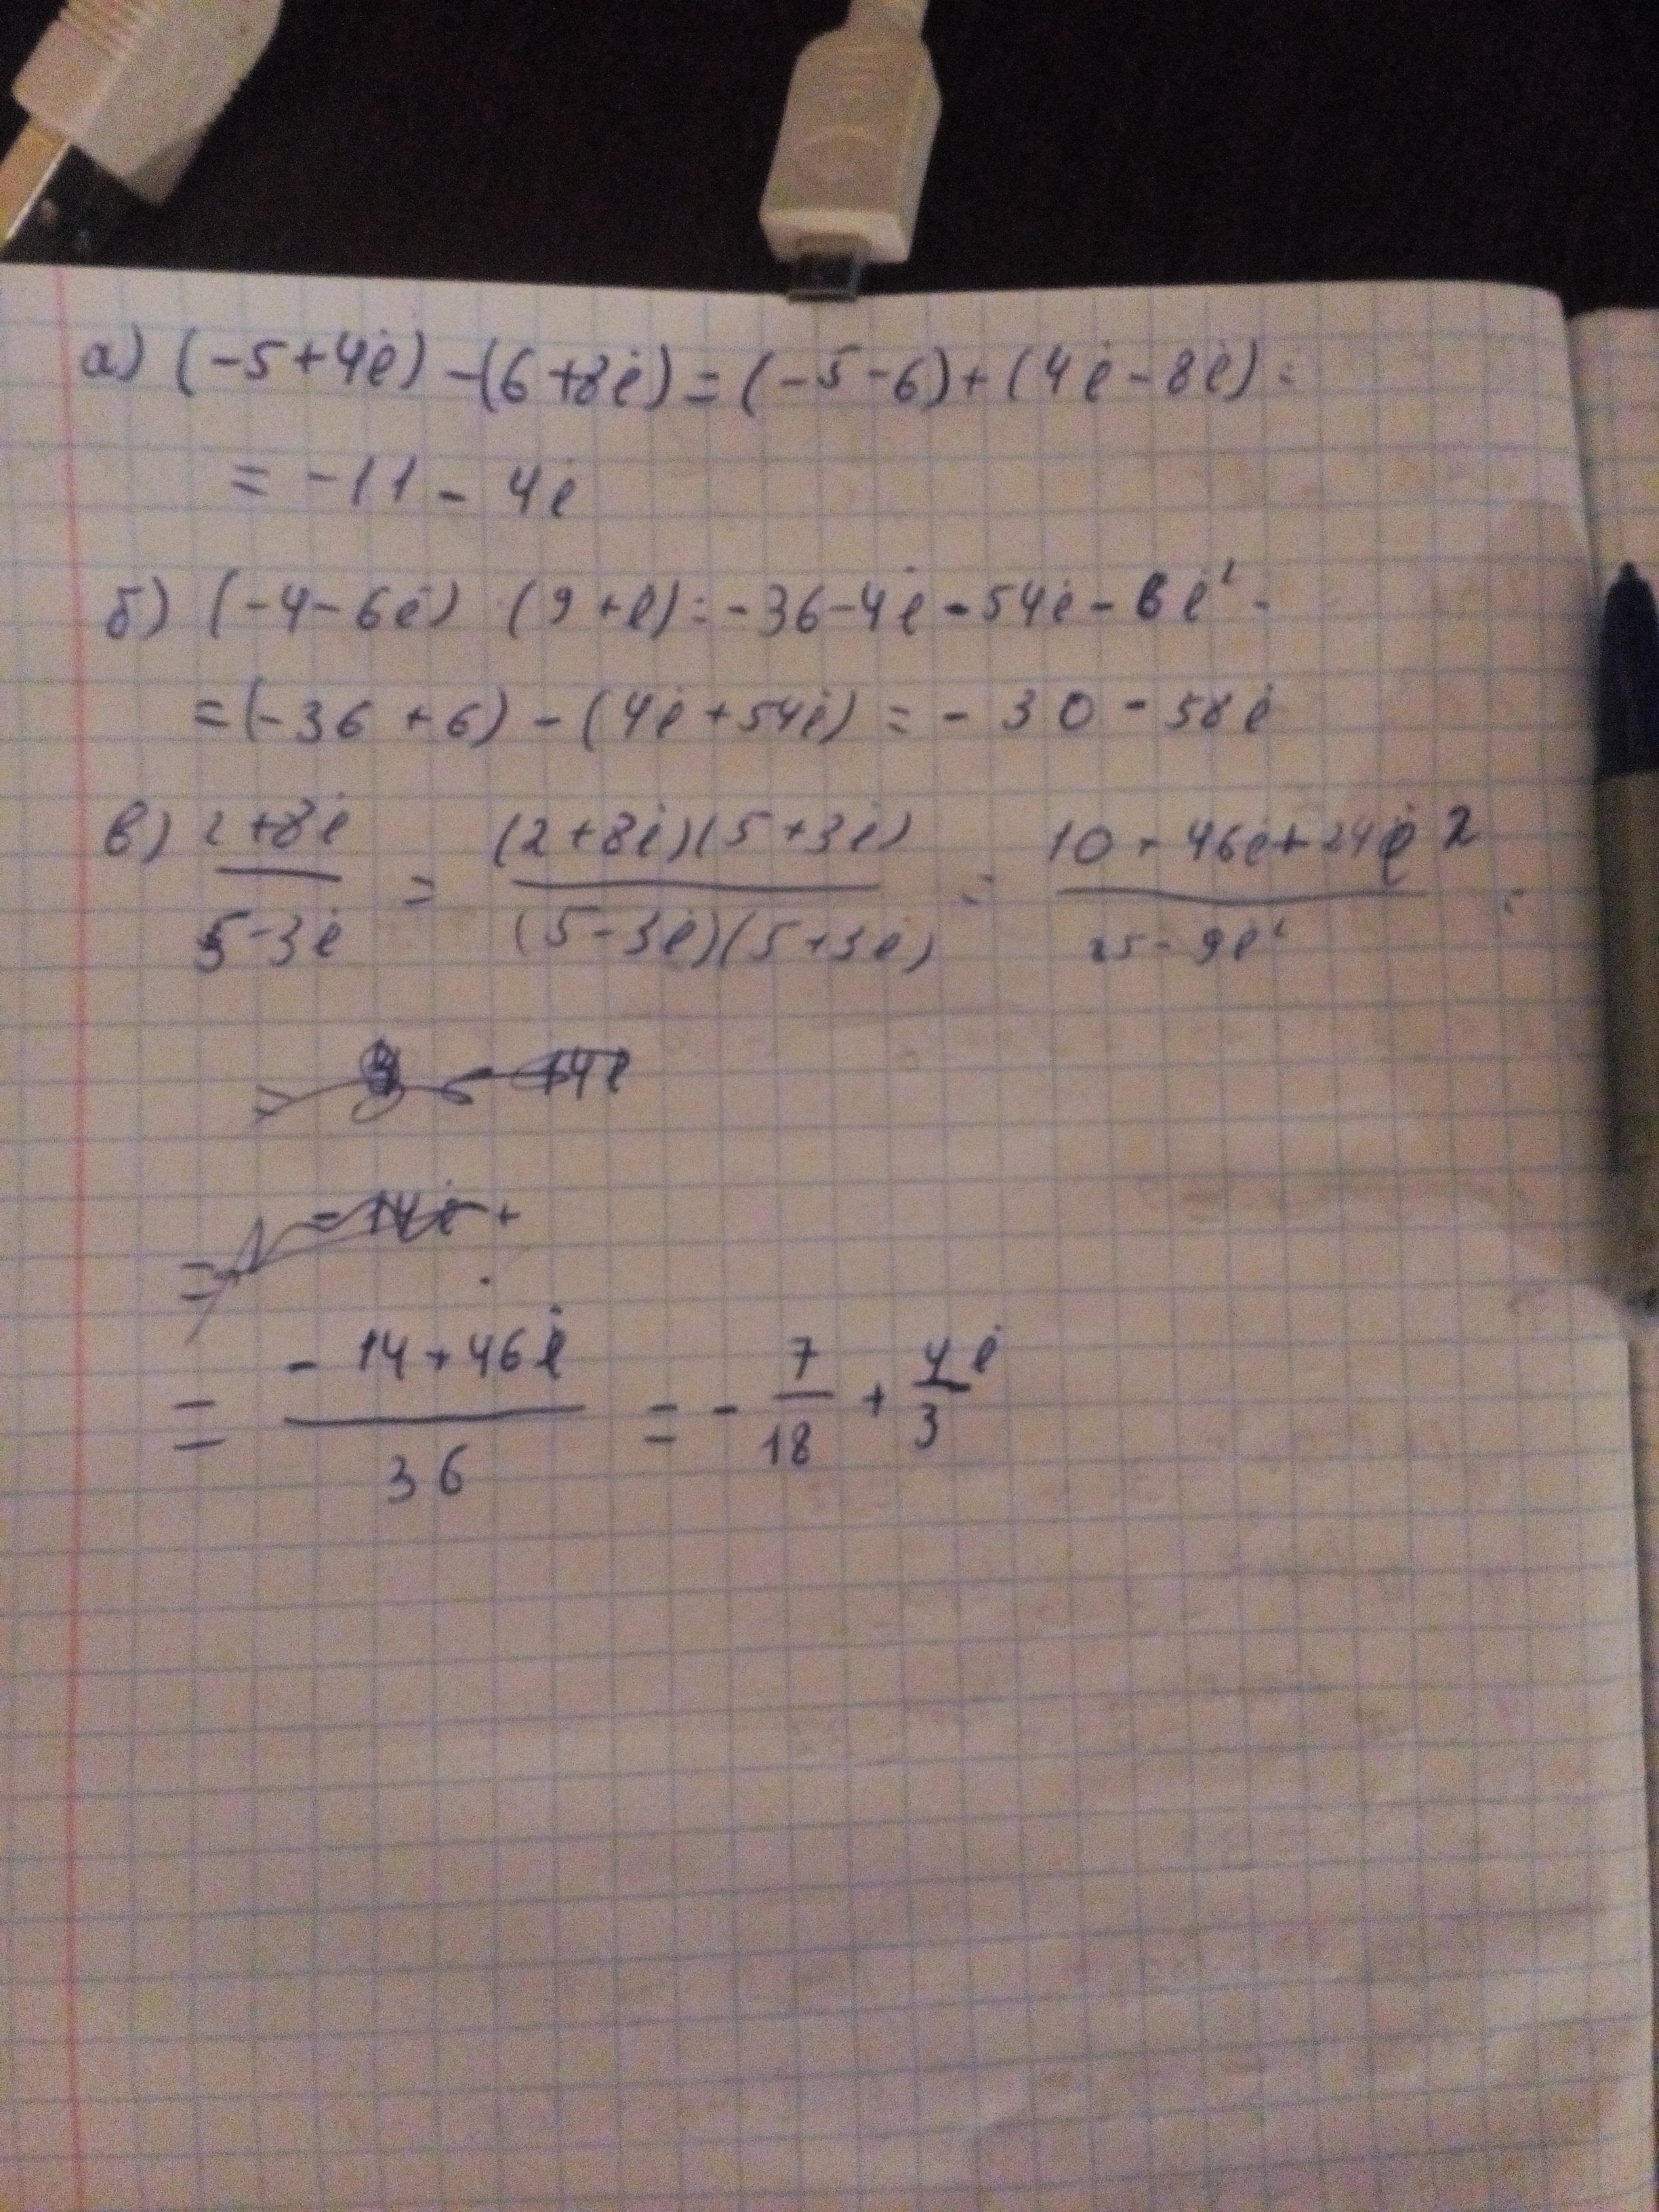 а) (-5+4i) -(6+8i) = (-5-6)+(4i-8i) =
= -11 - 4i
б) (-4-6i) · (9+i) = -36-4i-54i-6i² =
= (-36+6) - (4i+54i) = -30 - 58i
в) 2+8i / 5-3i = (2+8i)(5+3i) / (5-3i)(5+3i) = 10+46i+24i² / 25-9i² =
= -14+46i / 36 = - 7/18 + 4/3 i